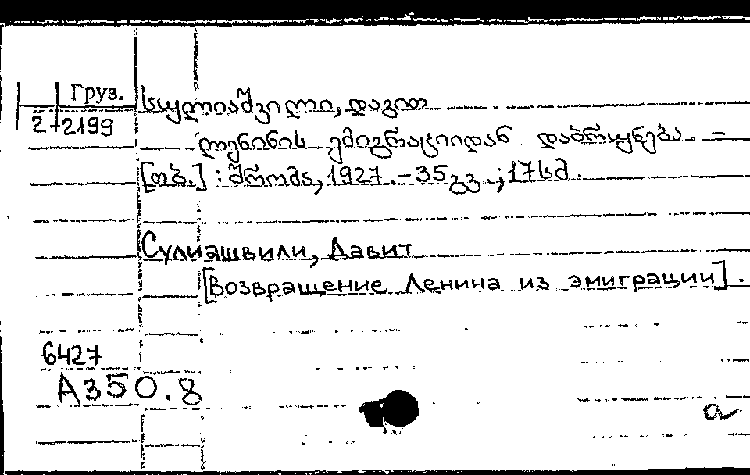 Груз. სულიაშვილი, დავით
2-2199
ლენინის ემიგრაციიდან დაბრუნება. –
[თბ.] : შრომა, 1927. – 35გვ. ; 17სმ.
Сулиашвили, Давит
[Возвращение Ленина из эмиграции].
6427
А350.8
a